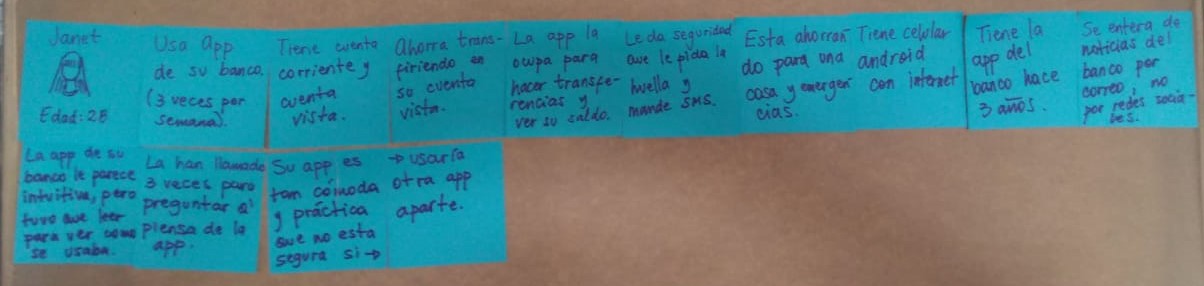 Janet
Edad: 28
Usa app
de su banco
(3 veces por
semana).
Tiene cuenta
corriente y
cuenta
vista.
Ahorra trans-
firiendo en
su cuenta
vista.
La app la
ocupa para
hacer transfe-
rencias y
ver su saldo.
Le da seguridad
que le pida la
huella y
mande SMS.
Esta ahorran
do para una
casa y emergen
cias.
Tiene celular
android
con internet
Tiene la
app del
banco hace
3 años.
Se entera de
noticias del
banco por
correo, no
por redes socia-
les.
La app de su
banco le parece
intuitiva, pero
tuvo que leer
para ver como
se usaba.
La han llamado
3 veces para
preguntar q'
piensa de la
app.
Su app es
tan cómoda
y práctica
que no esta
segura si →
→ usaría
otra app
aparte.